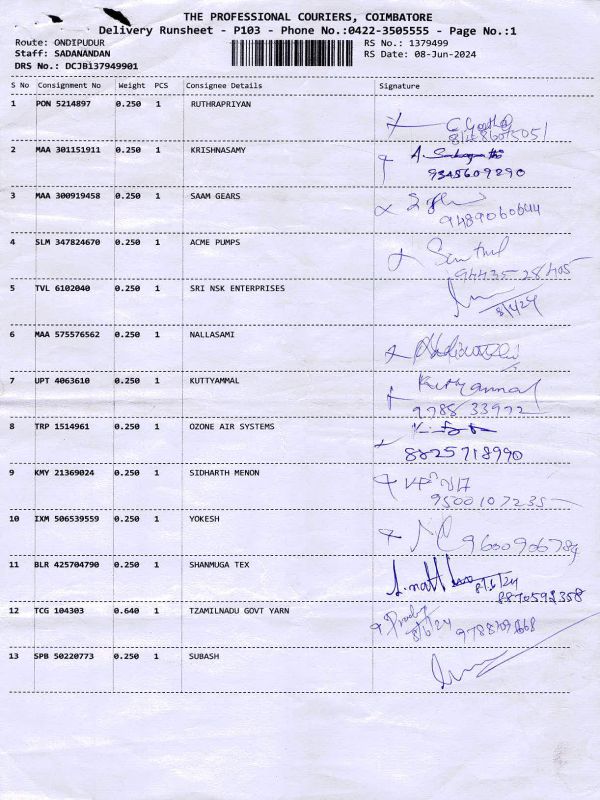 THE PROFESSIONAL COURIERS, COIMBATORE
Delivery Runsheet - P103 - Phone No.:0422-3505555 - Page No.:1
Route: ONDIPUDUR RS No.: 1379499
Staff: SADANANDAN RS Date: 08-Jun-2024
DRS No.: DCJBi37949901
S No Consignment No Weight PCS Consignee Details Signature
1 PON 5214897 0.250 1 RUTHRAPRIYAN
2 MAA 301151911 0.250 1 KRISHNASAMY A.
9345609290
3 MAA 300919458 0.250 1 SAAM GEARS
9489060644
4 SLM 347824670 0.250 1 ACME PUMPS Senthil
94435 28405
5 TVL 6102040 0.250 1 SRI NSK ENTERPRISES
6 MAA 575576562 0.250 1 NALLASAMI
7 UPT 4063610 0.250 1 KUTTYAMMAL Kuttyammal
9788 33972
8 TRP 1514961 0.250 1 OZONE AIR SYSTEMS
8825718990
9 KMY 21369024 0.250 1 SIDHARTH MENON
9500107235
10 IXM 506539559 0.250 1 YOKESH
9600906784
11 BLR 425704790 0.250 1 SHANMUGA TEX
8/6/24
8870592358
12 TCG 104303 0.640 1 TZAMILNADU GOVT YARN
8/6/24
13 SPB 50220773 0.250 1 SUBASH